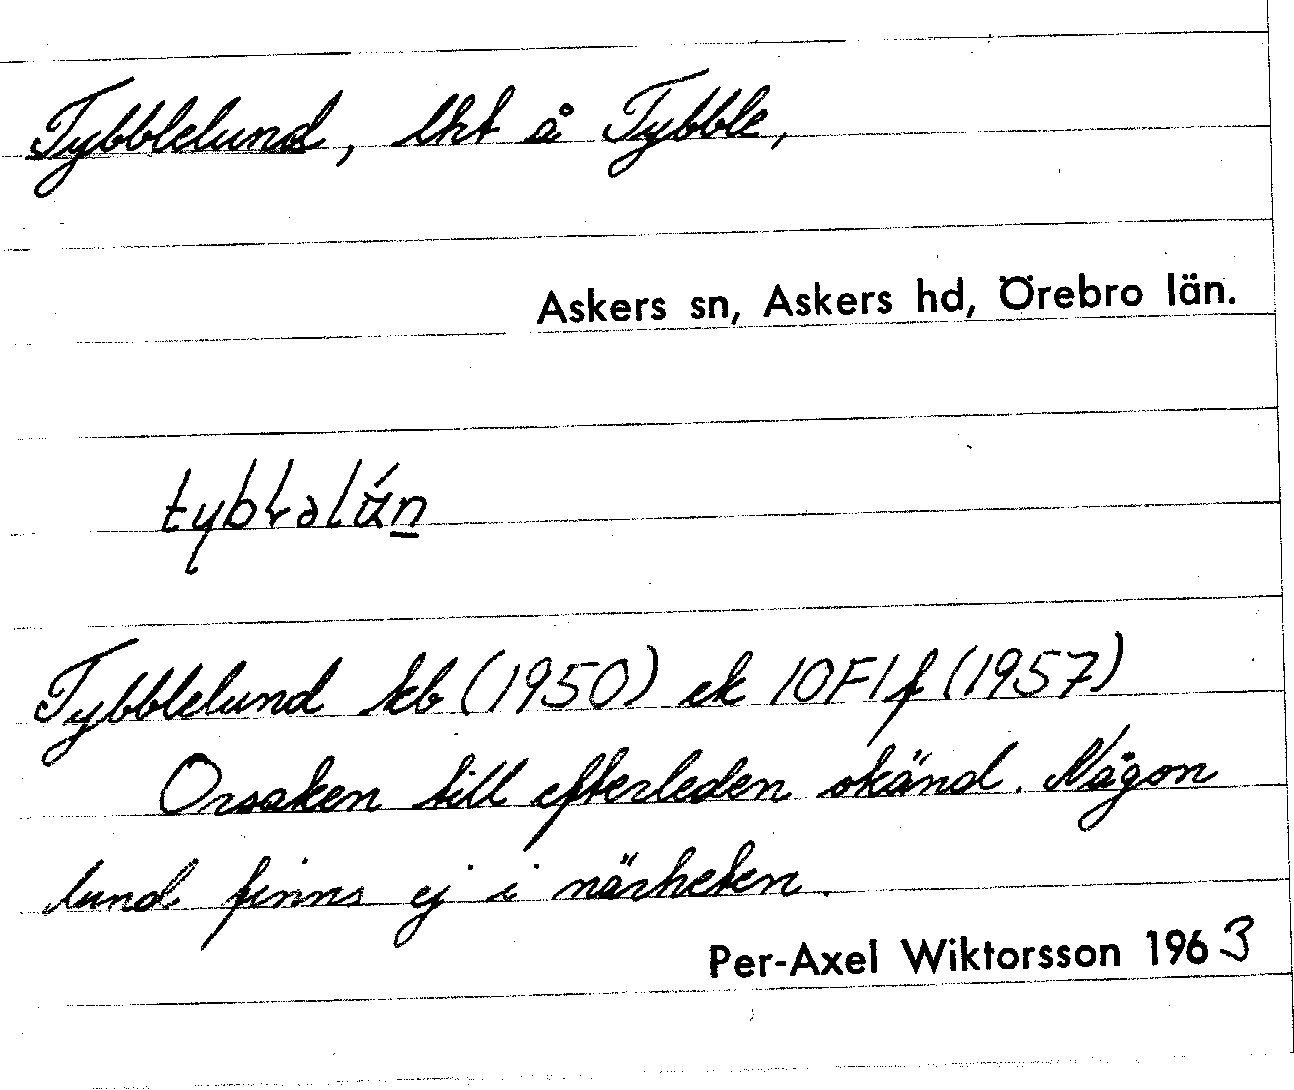 Tybblelund, lht å Tybble,
Askers sn, Askers hd, Örebro län.
Tybblelund kb (1950) ek 10F1f (1957)
Orsaken till efterleden okänd. Någon
lund finns ej i närheten.
Per-Axel Wiktorsson 1963